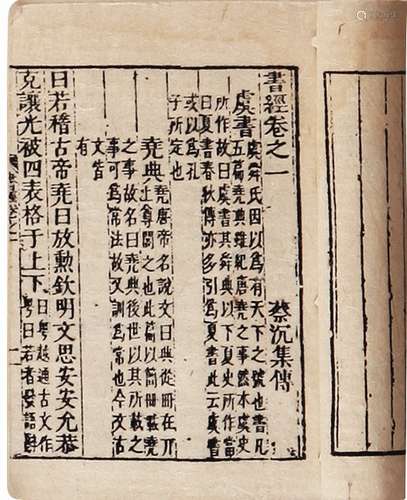 書經卷之一
蔡沉集傳
虞書
虞舜氏因以爲有天下之號也書凡
五篇堯典雖紀唐堯之事然本虞史
所作故曰虞書其舜典以下夏史所作當
曰夏書春秋傳亦多引爲夏書此云虞書
或以爲孔
子所定也
堯典
堯唐帝名說文曰典從冊在丌
上尊閣之也此篇以簡冊載堯
之事故名曰堯典後世以其所載之
事可爲常法故又訓爲常也今文古
文皆
有
曰若稽古帝堯曰放勲欽明文思安安允恭
克讓光被四表格于上下
曰粤越通古文作
粤曰若者發語辭